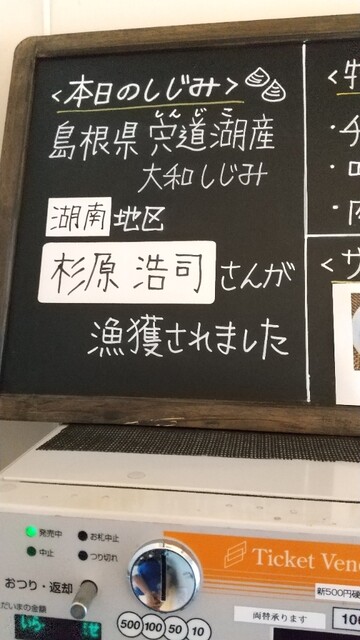 <本日のしじみ>
しんじこ
島根県 宍道湖産
大和しじみ
湖南 地区
杉原 浩司 さんが
漁獲されました
発売中
お札中止
中止
つり切れ
おつり・返却
だいまの金額
Ticket Ven
新500円硬
両替承ります
500 100 50 10